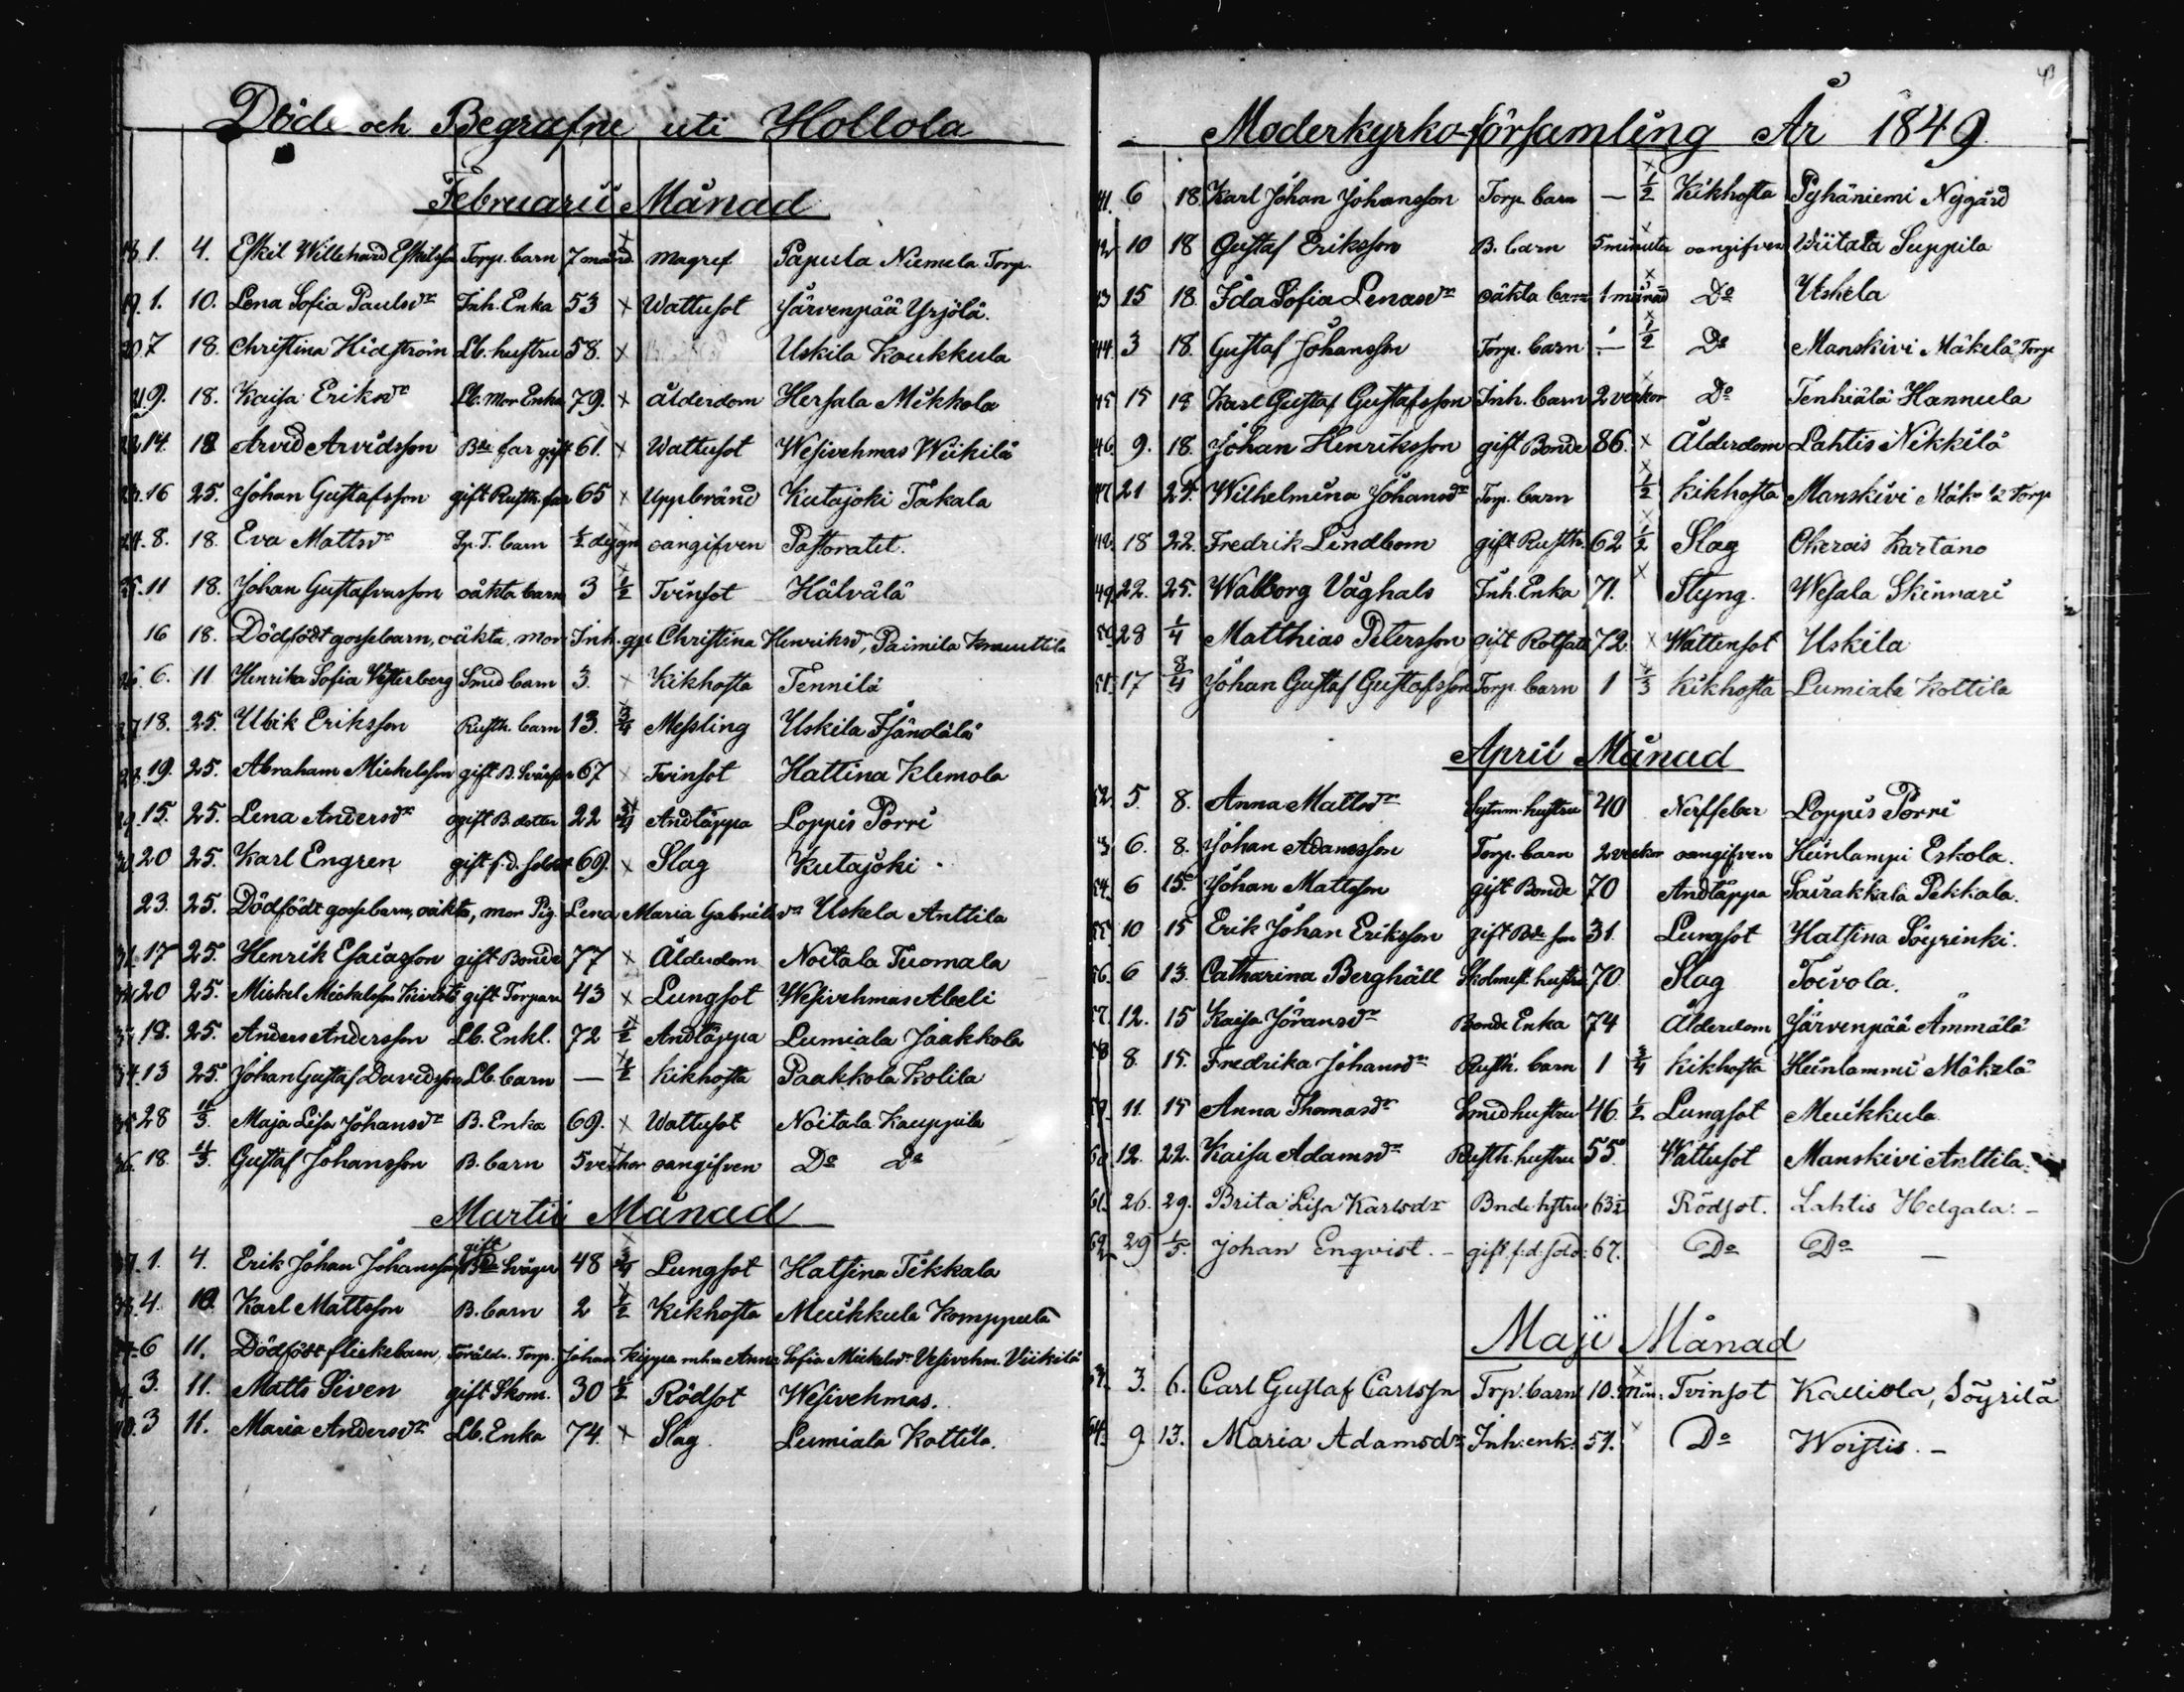 Döde och Begrafne uti Hollola
Februarii Månad
18. 1. 4. Eskil Willehard Eskilsson Torp. barn 7 månd x magref Papula Niemela Torp.
19. 1. 10. Lena Sofia Paulsdr Inh. Enka 53 x Wattusot Järvenpää Yrjölä.
20 7 18. Christina Hidström Lb. hustru 58. x Uskila Koukkula
21 9. 18. Kaisa Eriksdr Lb. Mor Enka 79. x ålderdom Hersala Mikkola
22 14. 18 Arvid Arvidsson Bde far gift 61. x Wattusot Wesivehmas Wiikilä
23. 16 25. Johan Gustafsson gift Rusth. far 65 x Uppbränd Kutajoki Takala
24. 8. 18. Eva Mattsdr Sp. T. barn ½ dygn oangifven Pastoratet.
25. 11 18. Johan Gustafvasson oäkta barn 3 ½ x Tvinsot Hälvälä
16 18. Dödfödt gossebarn, oäkta, mor Inh. gp. Christina Henriksdr, Paimela Knuuttila
26. 6. 11 Henrika Sofia Vesterberg Smed barn 3. x Kikhosta Tennilä
27. 18. 25. Ulrik Eriksson Rusth. barn 13. ¾ x Messling Uskila Isändälä
28. 19. 25. Abraham Mickelsson gift B. Svärfar 67 x Tvinsot Hattina Klemola
29. 15. 25. Lena Andersdr ogift B. dotter 22 ¾ x Andtäppa Loppis Porri
30. 20 25. Karl Engren gift f.d. soldat 69. x Slag Kutajoki.
23. 25. Dödfödt gossebarn, oäkta, mor Pig. Lena Maria Gabrielsdr Uskela Anttila
31. 17 25. Henrik Esaiasson gift Bonde 77 x Ålderdom Noitala Tuomala
32. 20 25. Mickel Mickelsson gift Torpare 43 x Lungsot Wesivehmas Abeli
33. 18. 25. Anders Andersson Lb. Enkl. 72 ½ x Andtäppa Lumiala Jaakkola
34. 13 25. Johan Gustaf Davidsson Lb. barn — ½ x kikhosta Paakkola Kolila
35 28 11/3. Maja Lisa Johansdr B. Enka 69. x Wattusot Noitala Kauppila
36. 18. 4/3. Gustaf Johansson B. barn 5 veckor x oangifven Do Do
Martii Månad
37. 1. 4. Erik Johan Johansson gift Bde Svåger 48 ¾ x Lungsot Hatsina Tekkala
38. 4. 10. Karl Mattsson B. barn 2 ½ x Kikhosta Meukkula Komppula
6 11. Dödfödt flickebarn, Föräldr. Torp. Johan Kippa m hu Anna Sofia Mickelsdr Vesivehm. Viikilä
39. 3. 11. Matts Siven gift Skom. 30 ½ x Rödsot Wesivehmas.
40. 3 11. Maria Andersdr Lb. Enka 74. x Slag Lumiala Kottila.
Moderkyrko-församling År 1849.
41. 6 18. Karl Johan Johansson Torp. barn — ½ x Kikhosta Pyhäniemi Nygård
42. 10 18 Gustaf Eriksson B. barn 5 minuter x oangifven Wiitala Seppila
43 15 18. Ida Sofia Lenasdr oäkta barn 1 månad x Do Uskela
44. 3 18. Gustaf Johansson Torp. barn — ½ x Do Manskivi Mäkelä Torp
45 15 18 Karl Gustaf Gustafsson Inh. barn 2 veckor x Do Tenhiälä Hannula
46. 9. 18. Johan Henriksson gift Bonde 86. x Ålderdom Lahtis Nikkilä
47. 21 25. Wilhelmina Johansdr Torp. barn ½ x kikhosta Manskivi Mäkelä Torp
48. 18 22. Fredrik Lindbom gift Rusth. 62 ½ x Slag Okerois Kartano
49. 22. 25. Walborg Våghals Inh. Enka 71. x Styng. Wesala Skinnari
50 28 1/4 Matthias Petersson gift Rotfatt 72 x Wattensot Uskila
51. 17 8/4 Johan Gustaf Gustafsson Torp. barn 1 ⅓ kikhosta Lumiala Kottila
April Månad
52. 5. 8. Anna Mattsdr Sytnm. hustru 40 Nerffeber Loppis Porri
53 6. 8. Johan Adamsson Torp. barn 2 veckor oangifven Heinlampi Eskola.
54. 6 15. Johan Mattsson gift Bonde 70 Andtäppa Sairakkala Pekkala.
55. 10 15 Erik Johan Eriksson gift Bde son 31. Lungsot Hatsina Söyrinki.
56. 6 13. Catharina Berghäll Skolmest. hustru 70. Slag Toivola.
57. 12. 15 Kaisa Jöransdr Bonde Enka 74 Ålderdom Järvenpää Ämmälä
58 8. 15. Fredrika Johansdr Rusth. barn 1 ¾ kikhosta Heinlammi Mäkelä
59. 11. 15 Anna Thomasdr Smed hustru 46. ½ Lungsot Meukkula
60. 12. 22. Kaisa Adamsdr Rusth. hustru 55. Wattusot Manskivi Anttila.
61. 26. 29. Brita Lisa Karlsdr Bnde hstru 63½ Rödsot. Lahtis Helgala. -
62. 29 1/5. Johan Enqvist. - gift f:d: sold: 67. Do Do —
Maji Månad
63. 3. 6. Carl Gustaf Carlssn Trp. barn 10. mån: x Tvinsot Kalliola, Söyrilä
64. 9. 13. Maria Adamsdr Inh: enk: 51. x Do Woistis. -